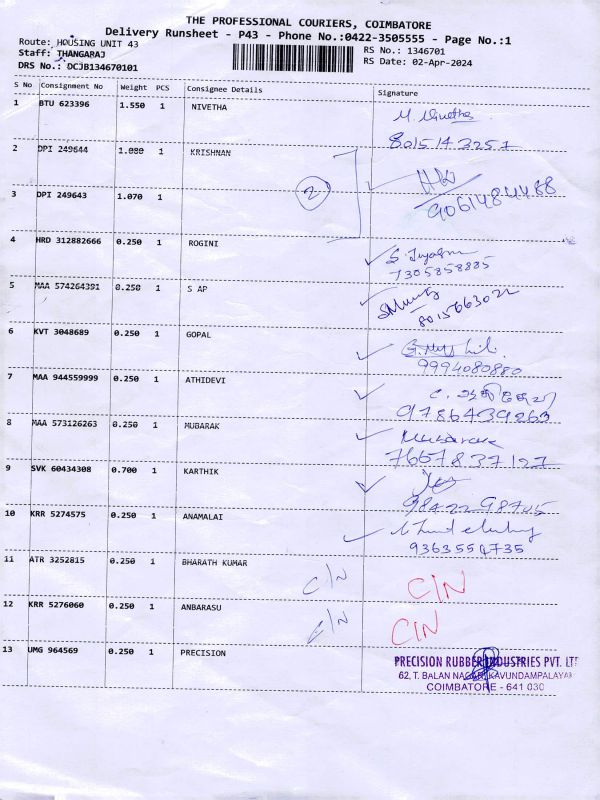 THE PROFESSIONAL COURIERS, COIMBATORE
Delivery Runsheet - P43 - Phone No.:0422-3505555 - Page No.:1
Route: HOUSING UNIT 43
RS No.: 1346701
Staff: THANGARAJ
RS Date: 02-Apr-2024
DRS No.: DCJB134670101
S No Consignment No Weight PCS Consignee Details Signature
1 BTU 623396 1.550 1 NIVETHA M. Nivetha
8015143257
2 DPI 249644 1.080 1 KRISHNAN
2
9061484488
3 DPI 249643 1.070 1
4 HRD 312882666 0.250 1 ROGINI
7305858885
5 MAA 574264391 0.250 1 S AP
8015663022
6 KVT 3048689 0.250 1 GOPAL
9994080880
7 MAA 944559999 0.250 1 ATHIDEVI
9786439263
8 MAA 573126263 0.250 1 MUBARAK Mubarak
7667837127
9 SVK 60434308 0.700 1 KARTHIK
9842298745
10 KRR 5274575 0.250 1 ANAMALAI
9363554735
11 ATR 3252815 0.250 1 BHARATH KUMAR C/N C/N
12 KRR 5276060 0.250 1 ANBARASU C/N C/N
13 UMG 964569 0.250 1 PRECISION
PRECISION RUBBER INDUSTRIES PVT. LTD
62, T. BALAN NAGAR, KAVUNDAMPALAYAM
COIMBATORE - 641 030